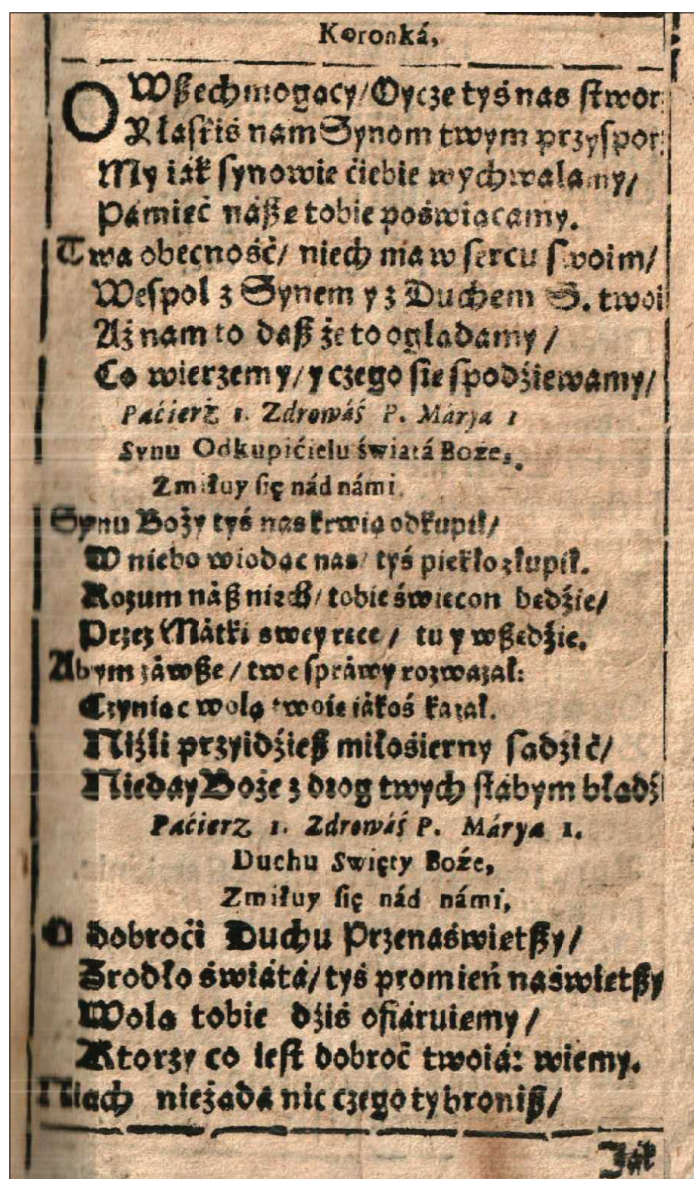 Koronká,
O Wszechmogacy/ Oycze tyś nas stwor
Z łaskiś nam Synom twym przyspor
My iák synowie ćiebie wychwalamy/
Pámieć nászę tobie poświącamy.
Twa obecność/ niech ma w sercu swoim/
Wespol z Synem y z Duchem S. twoi
Aż nam to dasz że to ogladamy/
Co wierzemy/ y czego sie spodźiewamy/
Paćierz 1. Zdrowáś P. Márya 1
Synu Odkupićielu świátá Boże,
Zmiłuy się nád námi.
Synu Boży tyś nas krwią odkupił/
W niebo wiodac nas/ tyś piekło złupił.
Rozum nász niech/ tobie święcon bedźie/
Przez Mátki swey rece/ tu y wszedźie.
Abym záwsze/ twe spráwy rozwazał:
Czyniac wolą twoię iákoś kazał.
Niżli przyidźiesz miłosierny sadźić/
Nieday Boże z drog twych słábym błądź
Paćierz 1. Zdrowáś P. Márya 1.
Duchu Swięty Boże,
Zmiłuy się nád námi,
O dobroći Duchu Przenaświetszy/
Zrodło świátá/ tyś promień naświetszy
Wolą tobie dźiś ofiáruiemy/
Ktorzy co iest dobroć twoiá: wiemy.
Niach nieżáda nic czego ty bronisz/
Ják